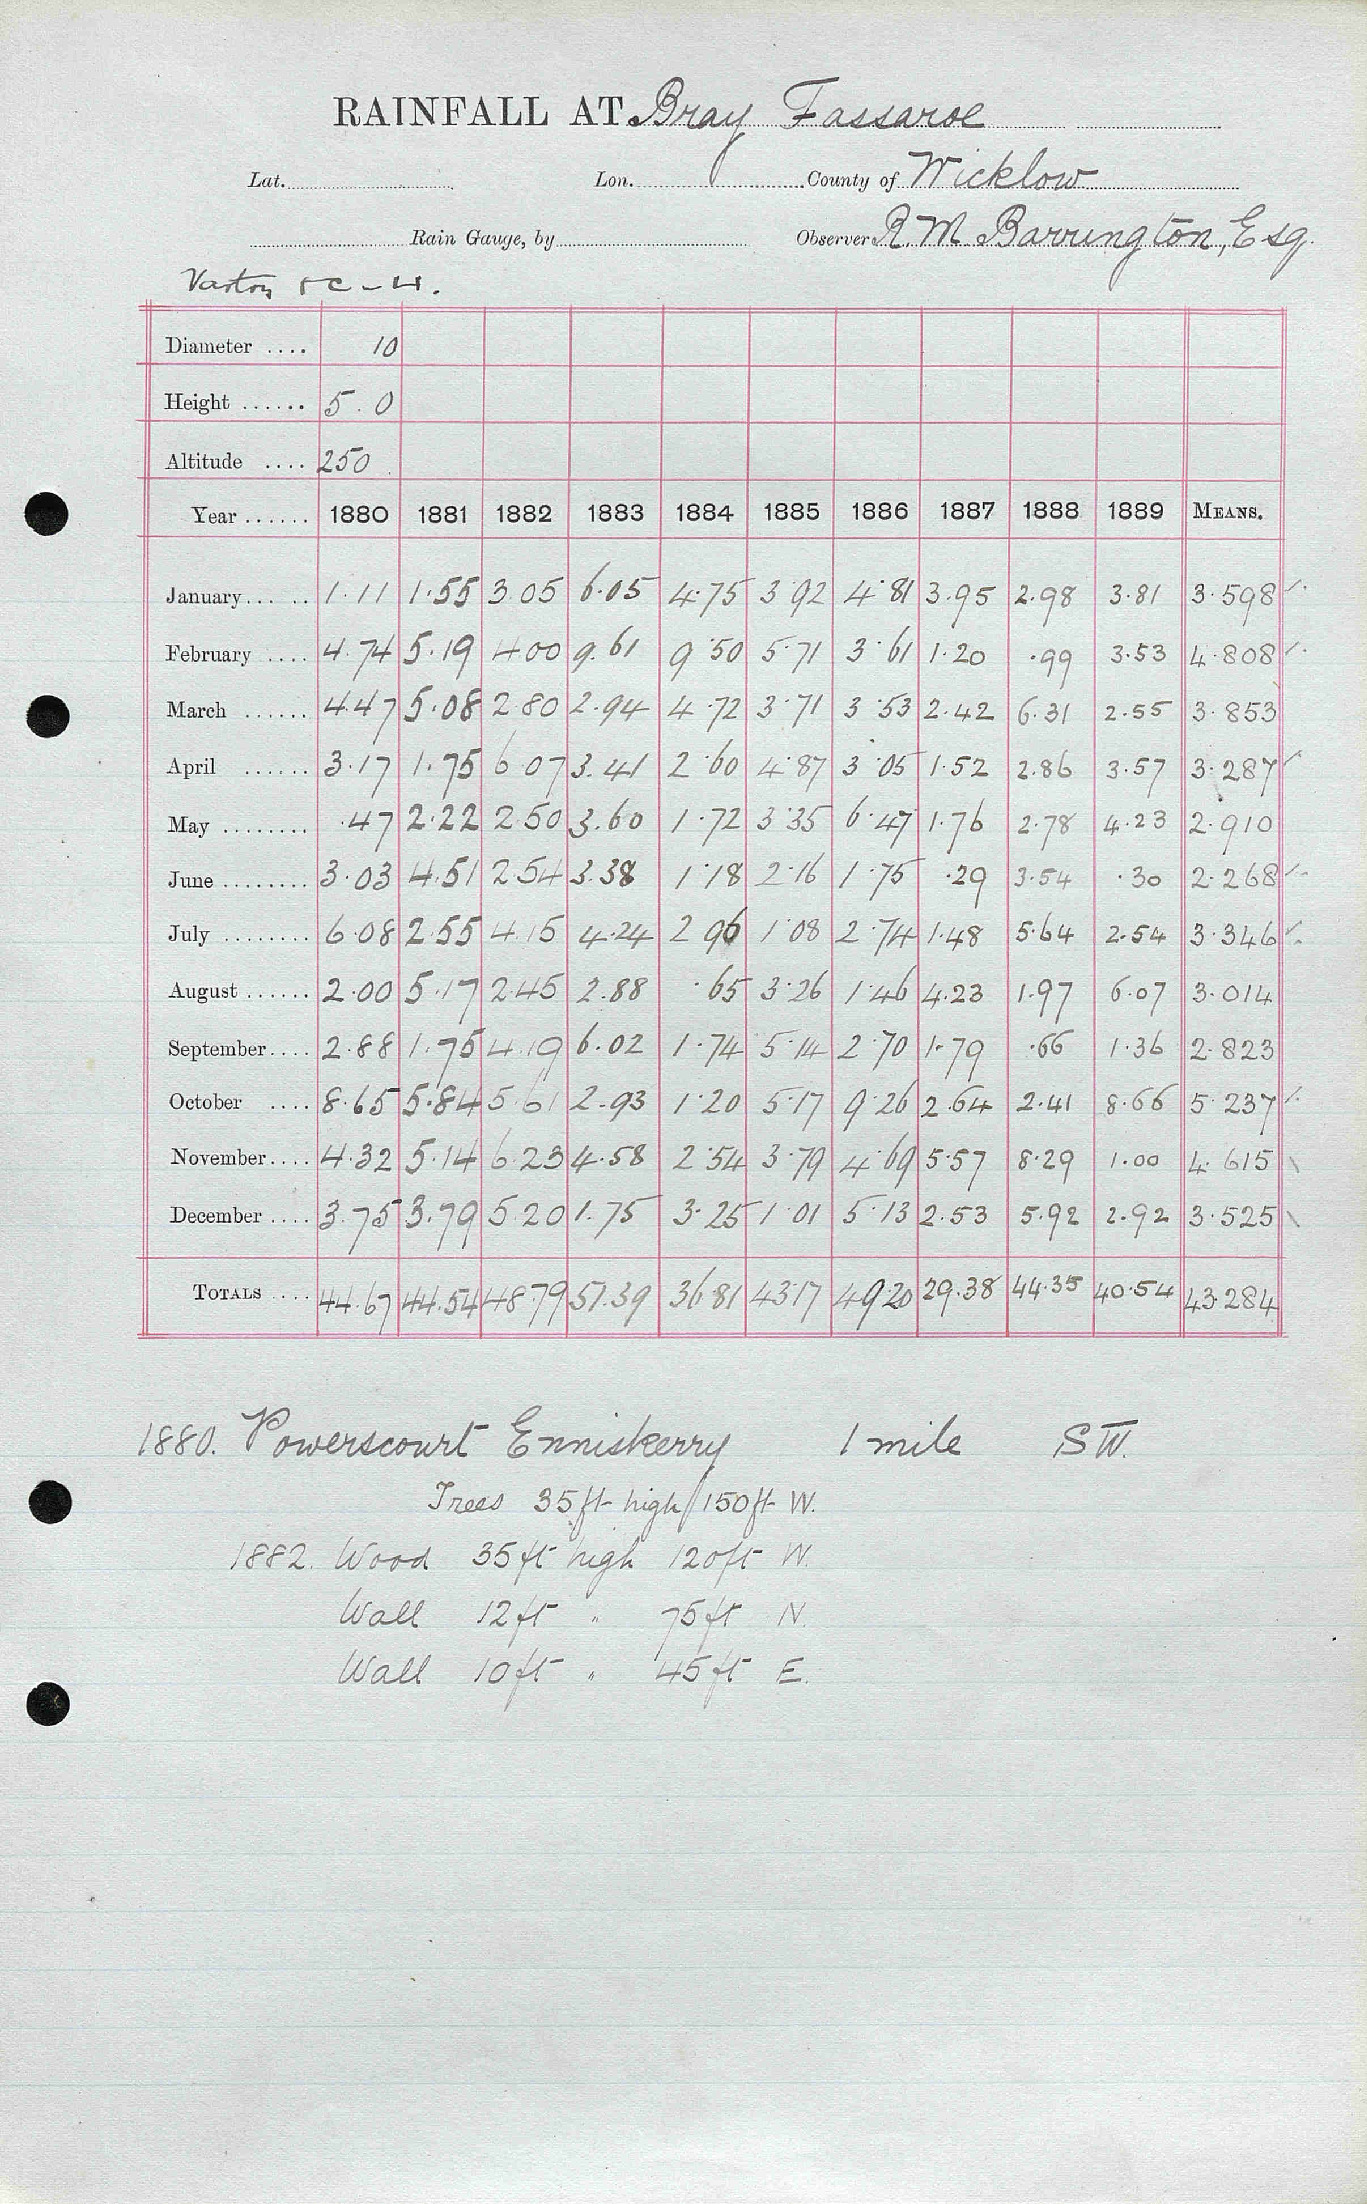 RAINFALL AT Bray Fassaroe
Lat. Lon. County of Wicklow
Rain Gauge, by Observer R. M. Barrington, Esq.
Diameter .... 10
Height ...... 5.0
Altitude .... 250
Year ...... 1880 1881 1882 1883 1884 1885 1886 1887 1888 1889 MEANS.
January...... 1.11 1.55 3.05 6.05 4.75 3.92 4.81 3.95 2.98 3.81 3.598
February .... 4.74 5.19 4.00 9.61 9.50 5.71 3.61 1.20 .99 3.53 4.808
March ...... 4.47 5.08 2.80 2.94 4.72 3.71 3.53 2.42 6.31 2.55 3.853
April ...... 3.17 1.75 6.07 3.41 2.60 4.87 3.05 1.52 2.86 3.57 3.287
May ........ .47 2.22 2.50 3.60 1.72 3.35 6.47 1.76 2.78 4.23 2.910
June ........ 3.03 4.51 2.54 3.38 1.18 2.16 1.75 .29 3.54 .30 2.268
July ........ 6.08 2.55 4.15 4.24 2.96 1.08 2.74 1.48 5.64 2.54 3.346
August ...... 2.00 5.17 2.45 2.88 .65 3.26 1.46 4.23 1.97 6.07 3.014
September.... 2.88 1.75 4.19 6.02 1.74 5.14 2.70 1.79 .66 1.36 2.823
October .... 8.65 5.84 5.61 2.93 1.20 5.17 9.26 2.64 2.41 8.66 5.237
November.... 4.32 5.14 6.23 4.58 2.54 3.79 4.69 5.57 8.29 1.00 4.615
December .... 3.75 3.79 5.20 1.75 3.25 1.01 5.13 2.53 5.92 2.92 3.525
TOTALS .... 44.67 44.54 48.79 51.39 36.81 43.17 49.20 29.38 44.35 40.54 43.284
1880. Powerscourt Enniskerry 1 mile S W.
Trees 35 ft high 150 ft W.
1882. Wood 35 ft high 120 ft W.
Wall 12 ft " 75 ft N.
Wall 10 ft " 45 ft E.